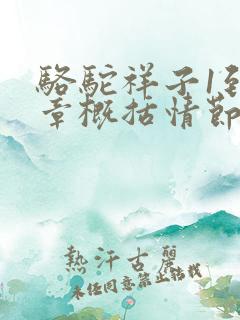 駱駝祥子1到
章概括情節
熱汗古麗
未经同意禁止转载